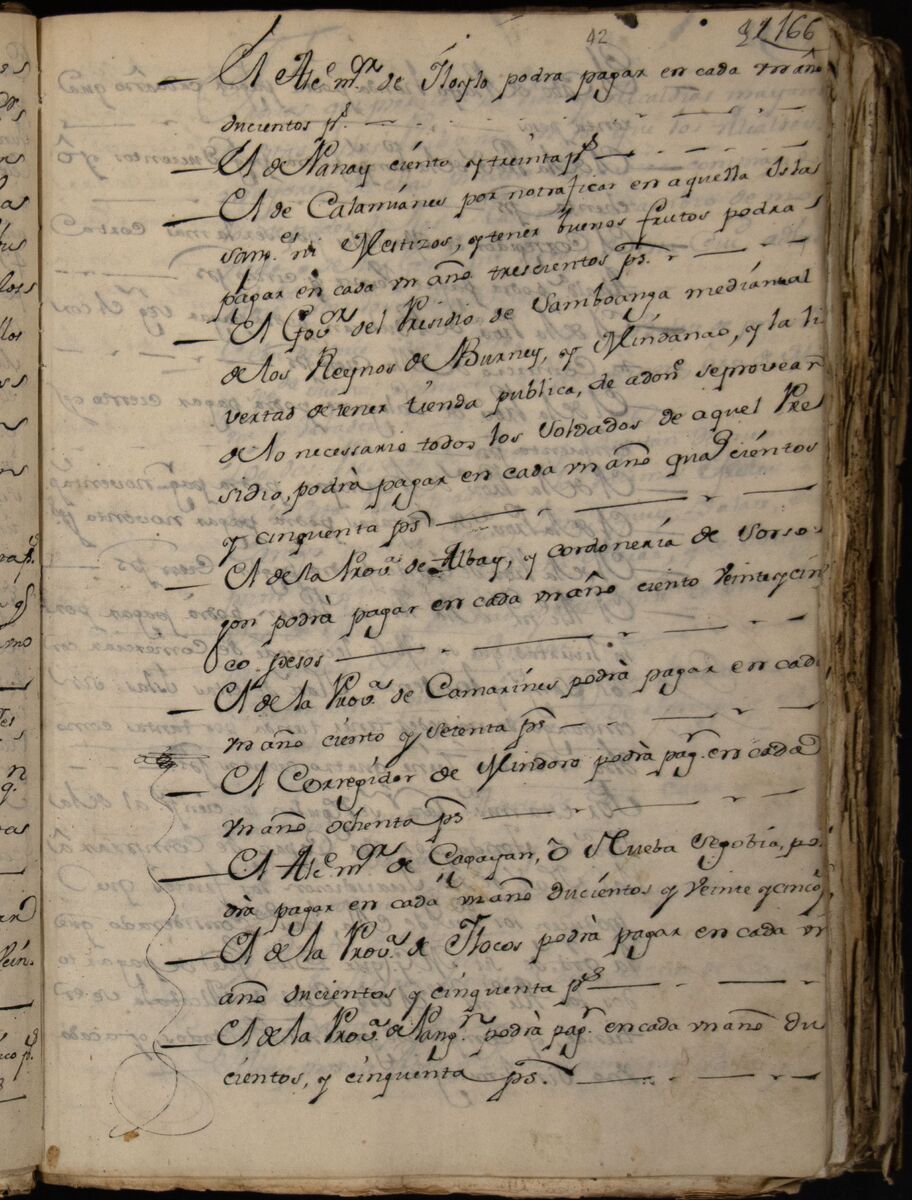 42
166
El Alce. mor. de Yloylo podra pagar en cada un año
ducientos ps.
El de Panay ciento y treinta ps
El de Calamianes por no traficar en aquella Isla
sangs. ni Mestizos, y tener buenos frutos podra
pagar en cada un año trescientos ps.
El Gov.or del Presidio de Samboanga mediania al
de los Reynos de Burney, y Mindanao, y la li
vertad de tener tienda publica, de adone. se provean
de lo necessario todos los Soldados de aquel Pre
sidio, podrà pagar en cada un año quatrocientos
y cinquenta ps
El de la Prova. de Albay, y cordoneria de Sorso
gon podrà pagar en cada un año ciento veinte y cin
co pesos
El de la Prova. de Camarines podrà pagar en cada
un año ciento y setenta ps
El Corregidor de Mindoro podrà pagr. en cada
un año ochenta ps
El Alce. mor. de Cagayan, ò Nueba Segobia, po
drà pagar en cada un año ducientos y veinte y cinco
El de la Prova. de Ylocos podrà pagar en cada un
año ducientos y cinquenta ps
El de la Prova. de Pangn. podrà pagr. en cada un año du
cientos, y cinquenta ps.